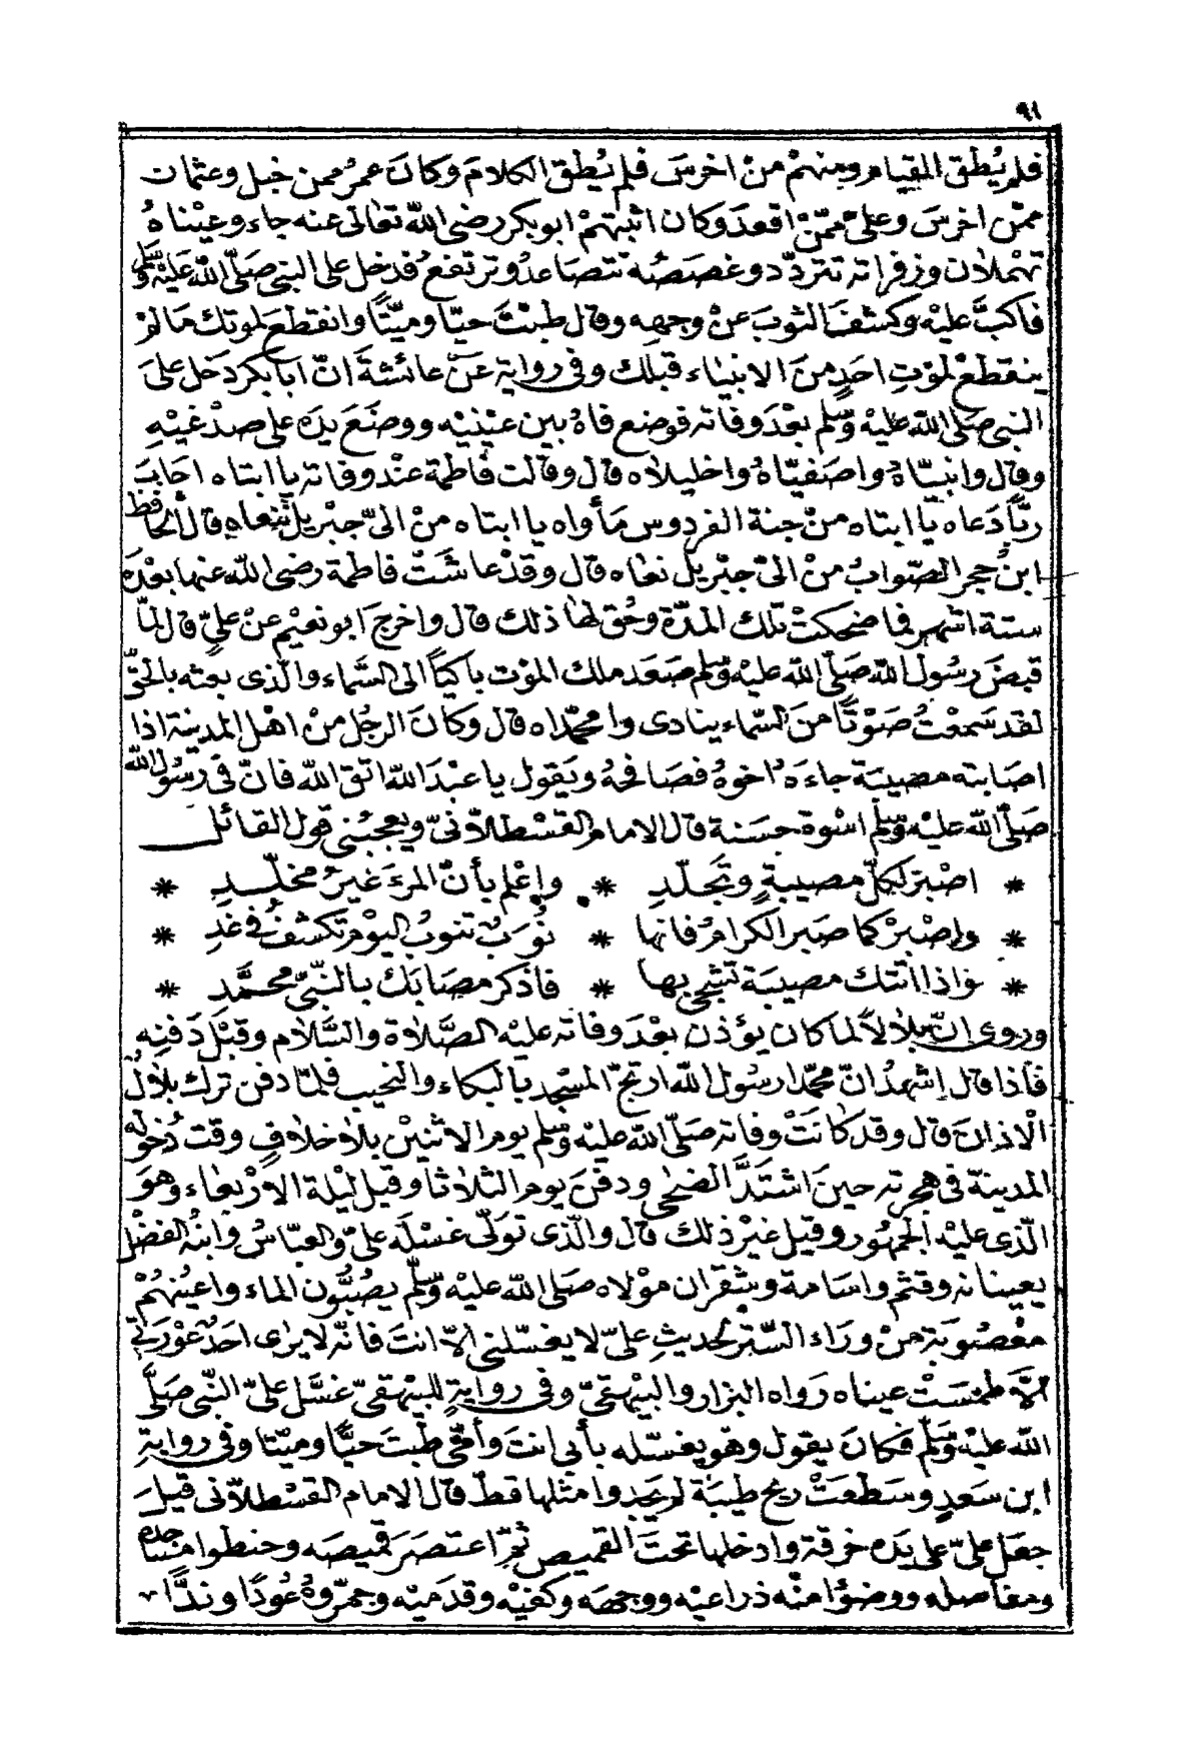 ٩١
فلم يُطق القيام ومنهمْ منْ اخرسَ فلم يُطق الكلامَ وكانَ عمرُ ممن خبل وعثمان
ممّن اخرسَ وعلىّ ممّنْ اقعدَ وكان اثبتهمْ ابو بكر رضى اللّه تعَالى عنه جاء وعيْناهُ
تهْملان وزفراته تتردّد وغصَصُه تتصَاعدُ وترتفعُ فدخل على النبى صَلّى اللّهُ عَليْه وسلم
فاكبَّ عليْه وكشفَ الثوبَ عنْ وجهِه وقال طبْتَ حيّا وميّتًا وانقطعَ لموتك مَا لمْ
ينقطعْ لموْتِ احَدٍ منَ الانبيَاء قبلك وفى رواية عَنْ عائشةَ انّ ابَا بكر دَخل علىَ
النبى صَلى اللّه عليْه وسَلّم بعْدَ وفاته فوضع فاهُ بين عيْنيْه ووضَعَ يدَه على صدْغيْهِ
وقال وانبيّاهُ واصَفيّاهُ واخليلاه قال وقالت فاطمة عنْد وفاته يا ابتاه اجَابَ
ربًّا دَعاه يَا ابتاه منْ جنة الفردوس مَأواه يا ابتاه منْ الىّ جبْريلَ ننْعاه قال الحافظ
ابنُ حجر الصّوابُ منْ الىّ جبْريلَ نعَاه قال وقدْ عاشَتْ فاطمة رضىَ اللّه عنها بعْدَه
ستة اشهر فما ضحكتْ تلك المدّة وحُق لها ذلك قال واخرجَ ابو نعيْم عنْ علىّ قال لمّا
قبضَ رسُولُ اللّه صَلّى اللّه عليْه وسَلم صَعَد ملك الموْت باكيًا الى السَّماء والّذى بعثه بالحقّ
لقد سَمعْتُ صَوْتًا منَ السّماء ينادى وا محمّداه قال وكانَ الرجُل منْ اهْل المدينة اذا
اصَابته مصيبَة جاءَهُ اخوهُ فصَافحهُ ويَقول يا عبْدَ اللّه اتق اللّه فانّ فى رسُول اللّه
صَلّى اللّه عليْه وسَلّم اسْوة حسَنة قال الامام القسْطلاّنىّ ويعجبُنى قول القائل
* اصْبر لكلّ مصيبةٍ وتجَلّدِ * واعْلم بأنّ المرءَ غيرُ مخلّدِ *
* واصْبرْ كما صَبر الكرامُ فانها * نُوَبٌ تنوبُ اليوْم تكشفُ فى غدِ *
* واذا اتتك مصيبَة تشجى بها * فاذكر مصَابَك بالنّبىّ محمَّدِ *
وروى انّ بلالاً لما كان يؤذن بعْدَ وفاته عليْه الصَّلاة والسَّلام وقبْلَ دَفنِه
فاذا قال اشهدُ انّ محمّدا رسُول اللّه ارتجّ المسْجد بالبكاء والنحيب فلمّا دفن ترك بلالُ
الْاذانَ قال وقد كانَتْ وفاته صَلّى اللّه عليْه وسَلم يوم الاثنيْن بلا خلافٍ وقت دُخوله
المدينة فى هجرته حينَ اشتَدَّ الضحَى ودفنَ يوم الثلاثا وقيل ليْلة الارْبعَاء وهوَ
الّذى عليْه الجمْهُور وقيل غيْر ذلك قال والّذى توَلّى غسْلَه علىّ والعبّاسُ وابنُه الفضْل
يعينانه وقثم واسَامة وشقران موْلاه صَلى اللّه عليْه وسَلّم يصُبُّون الماء واعيُنهُمْ
معْصُوبَة منْ ورَاء السّتر لحديثِ علىّ لا يغسّلنى الاّ انتَ فانّه لا يرَى احَدٌ عوْرَتى
الاّ طمسَتْ عيناه رَواه البزار والبيْهقىّ وفى روايةٍ للبيْهقىّ غسَّل علىّ النّبى صَلَّى
اللّه عليْه وسَلّم فكانَ يقول وهو يغسّله بأبى انتَ وأمّى طبْتَ حيًّا وميّتا وفى روايةِ
ابن سَعدٍ وسَطعَتْ ريح طيبَة لم يجدوا مثلها قطّ قال الامام القسْطلاّنى قيلَ
جعَل علىّ على يَده خرقة وادخلها تحتَ القميص ثمّ اعتصَرَ قميصَه وحنطوا مسَاجده
ومفاصله ووضؤا منْه ذراعيْه ووجهَه وكفيْه وقدَميْه وجمّروهُ عُودًا وندًّا